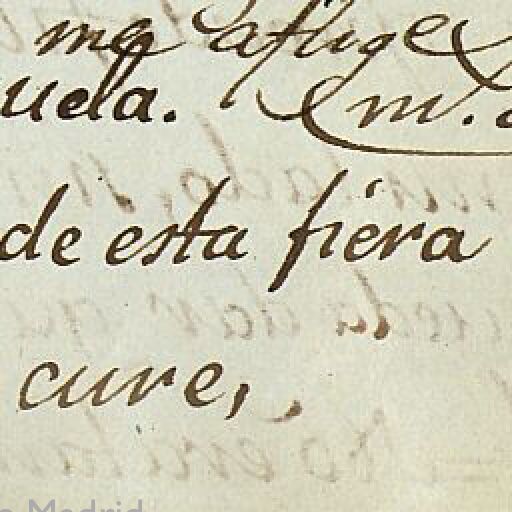 me aflige
uela. Em.
de esta fiéra
cure,
Madrid